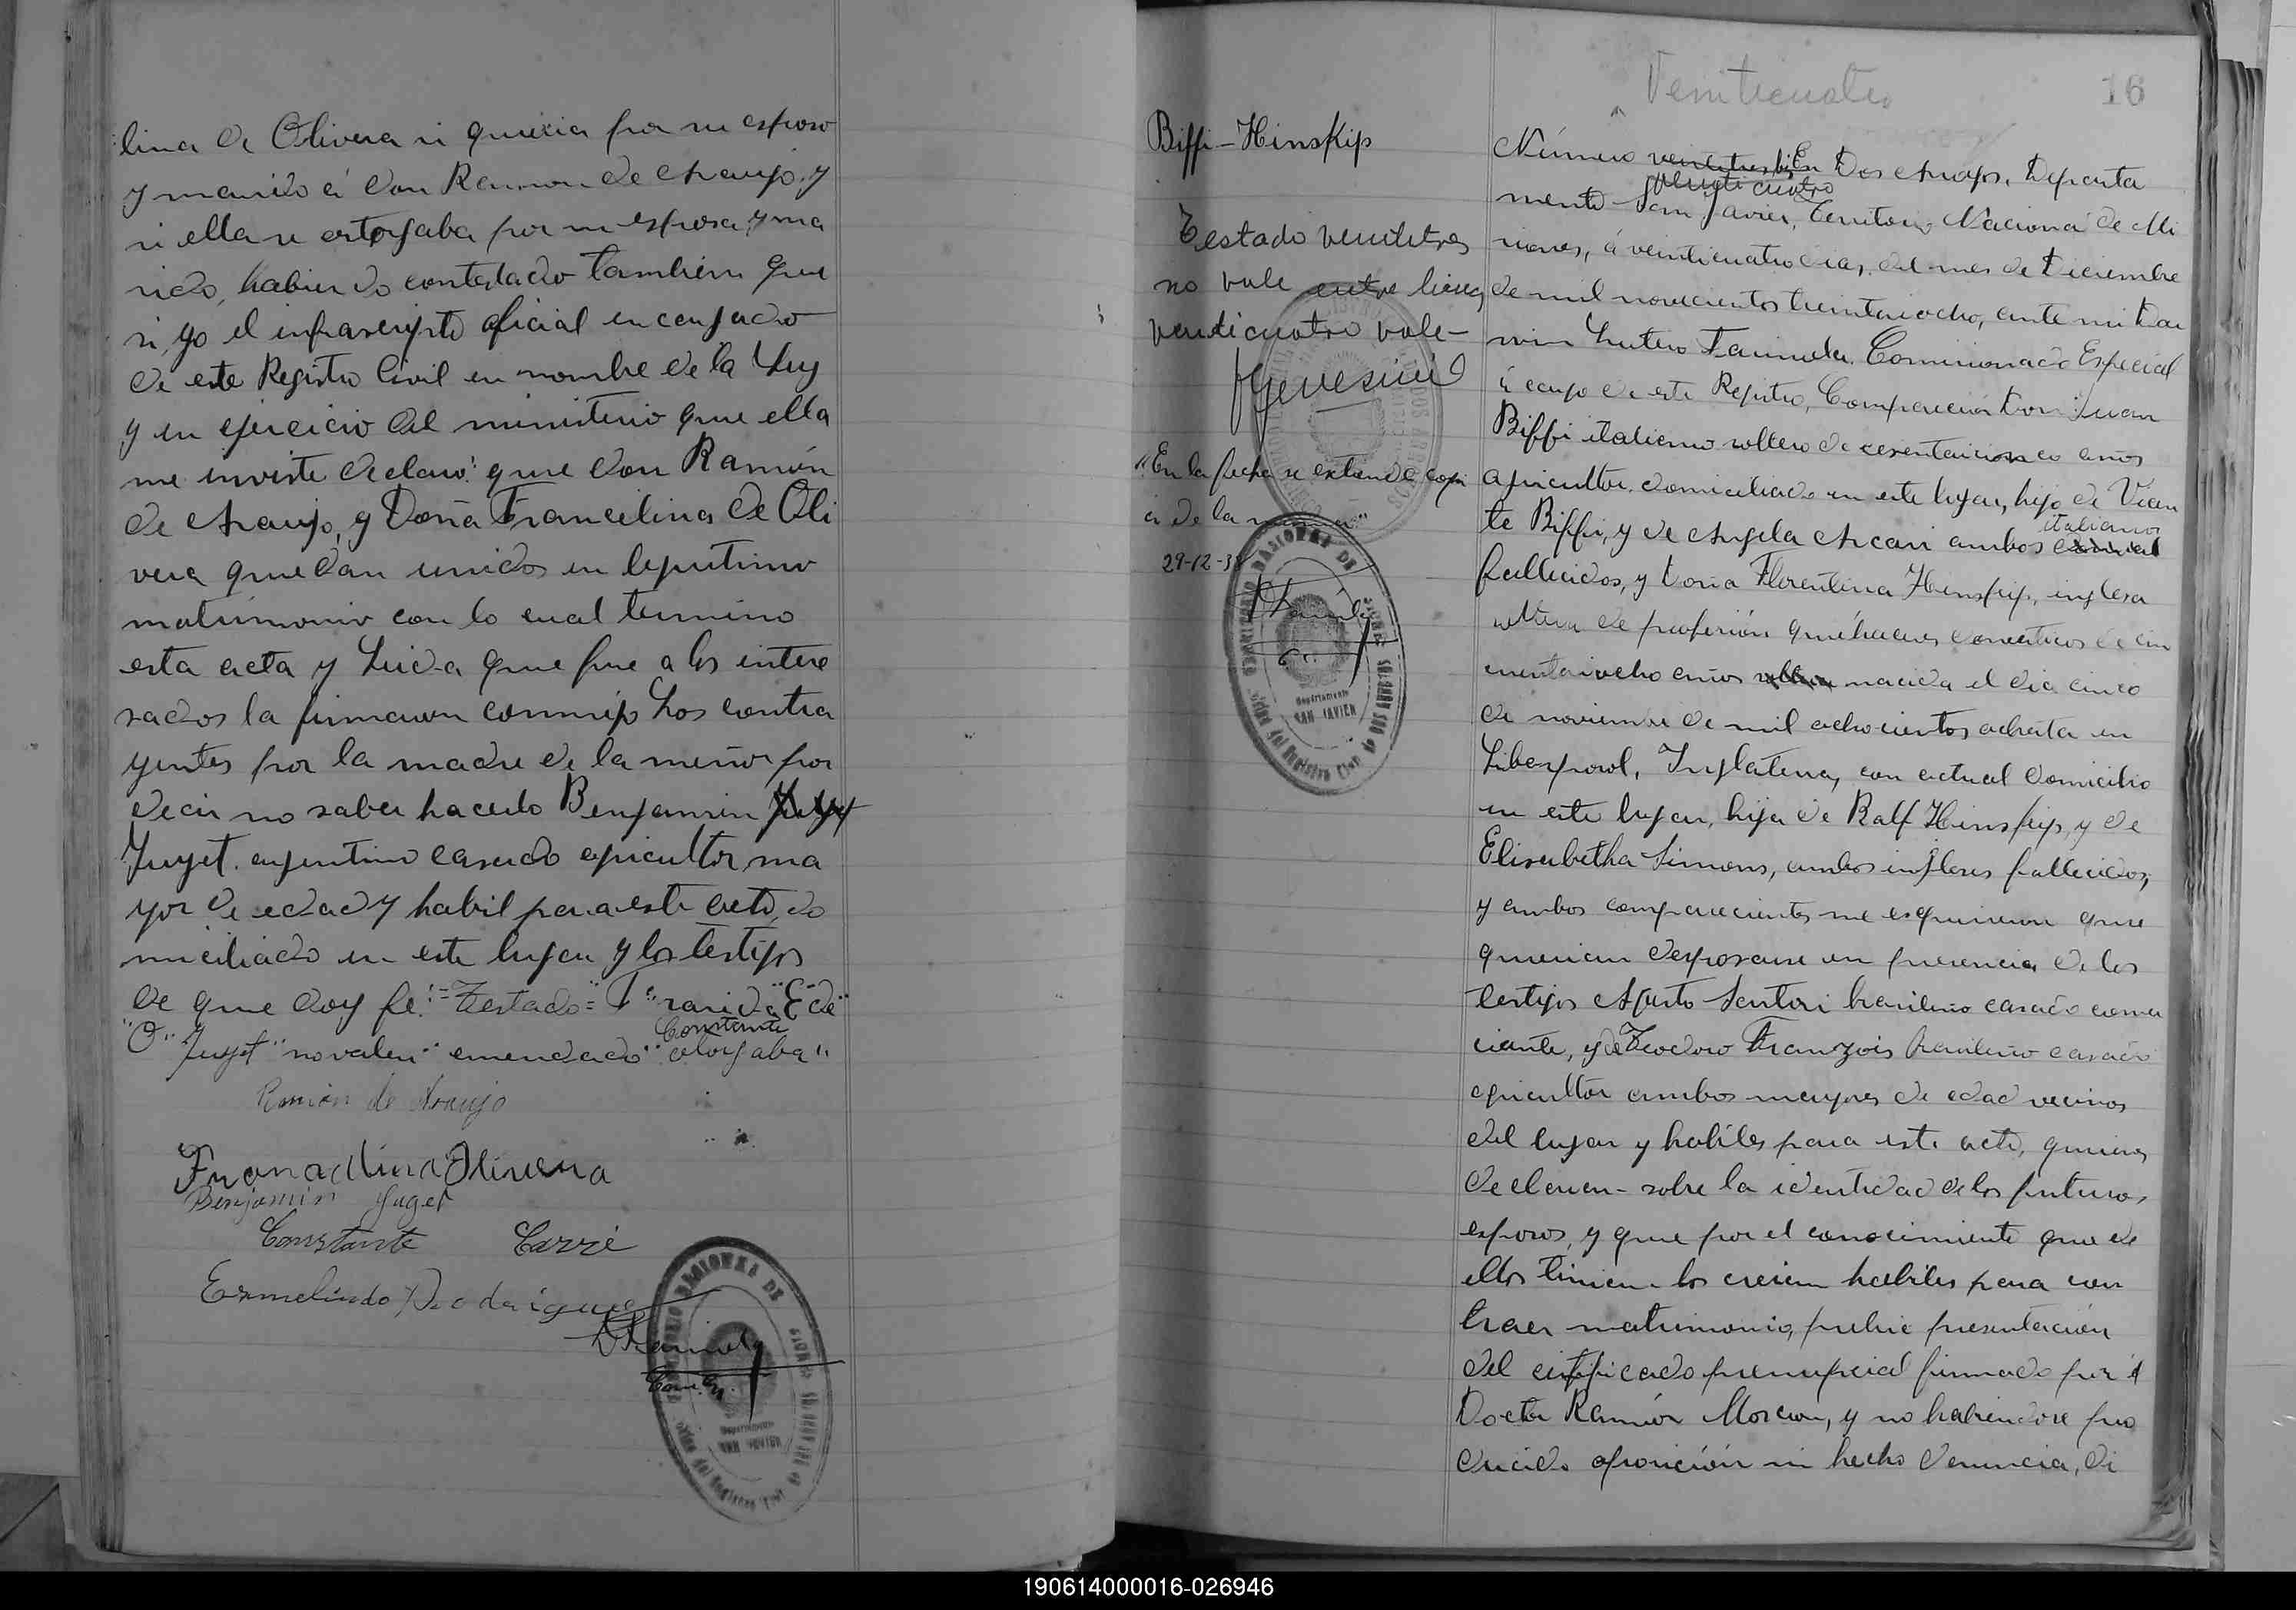 lina de Olivera si queria por su esposo
y marido á don Ramon de Araujo, y
si ella se otorgaba por su esposa, y ma
rido, habiendo contestado tambien que
si, yo el infrascripto oficial encargado
de este Registro Civil en nombre de la Ley
y en ejercicio del ministerio que ella
me inviste declaro: que don Ramón
de Araujo, y Doña Francelina de Oli
vera quedan unidos en legitimo
matrimonio con lo cual termino
esta acta y Leida que fue a los intere
sados la firmaron conmigo Los contra
yentes por la madre de la menor por
decir no saber hacerlo Benjamin
Juget. argentino casado agricultor, ma
yor de edad y habil para este acto, do
miciliado en este lugar y los testigos
de que doy fé:= Testado=
Constante
"O" "Juget" no valen" emendado" otorgaba"
Ramón de Araujo
Francelina Olivera
Benjamin Juget
Constante Carré
Ermelindo Rodriguez
GENDARMERIA NACIONAL DE
Departamento
SAN JAVIER
Oficina del Registro Civil de DOS ARROYOS
Biffi-Hinskip
Testado veintitres
no vale entre lineas
veinticuatro vale-
"En la fecha se extiende copi
a de la misma"
29-12-38
Departamento
SAN JAVIER
Oficina del Registro Civil de DOS ARROYOS
Venticuatro
16
Número ventitres bis En Dos Arroyos, Departa
venticuatro
mento San Javier, Territorio Nacional de Mi
siones, á veinticuatro dias, del mes de Diciembre
de mil novecientos treintaiocho, ante mi Dar
win Lutero Tarnula. Comisionado Especial
á cargo de este Registro, Comparecieron Don: Juan
Biffi italiano soltero de cesentaicinco años
agricultor. domiciliado en este lugar, hijo de Vicen
te Biffi, y de Angela Arcari ambos italianos
fallecidos, y doña Florentina Hinskip, inglesa
soltera de profesión quéhaceres domesticos de cin
cuentaiocho años nacida el dia cinco
de noviembre de mil ochocientos ochenta en
Liberpool, Inglaterra, con actual domicilio
en este lugar, hija de Ralf Hinskip, y de
Elisabetha Simons, ambos ingleses fallecidos,
y ambos comparecientes me esquisieron que
querian desposarse en presencia de los
testigos Agusto Santori brasileno casado comer
ciante, y de Teodoro Franzois brasileño casado
agricultor ambos mayores de edad vecinos
del lugar y habiles para este acto, quienes
declaran- sobre la identidad de los futuros
esposos, y que por el conocimiento que de
ellos tinian los creian habiles para con
traer matrimonio, previe presentación
del certificado prenupcial firmado por el
Doctor Ramón Moreau, y no habiendose pro
ducido oposición ni hecho denuncia, di
190614000016-026946